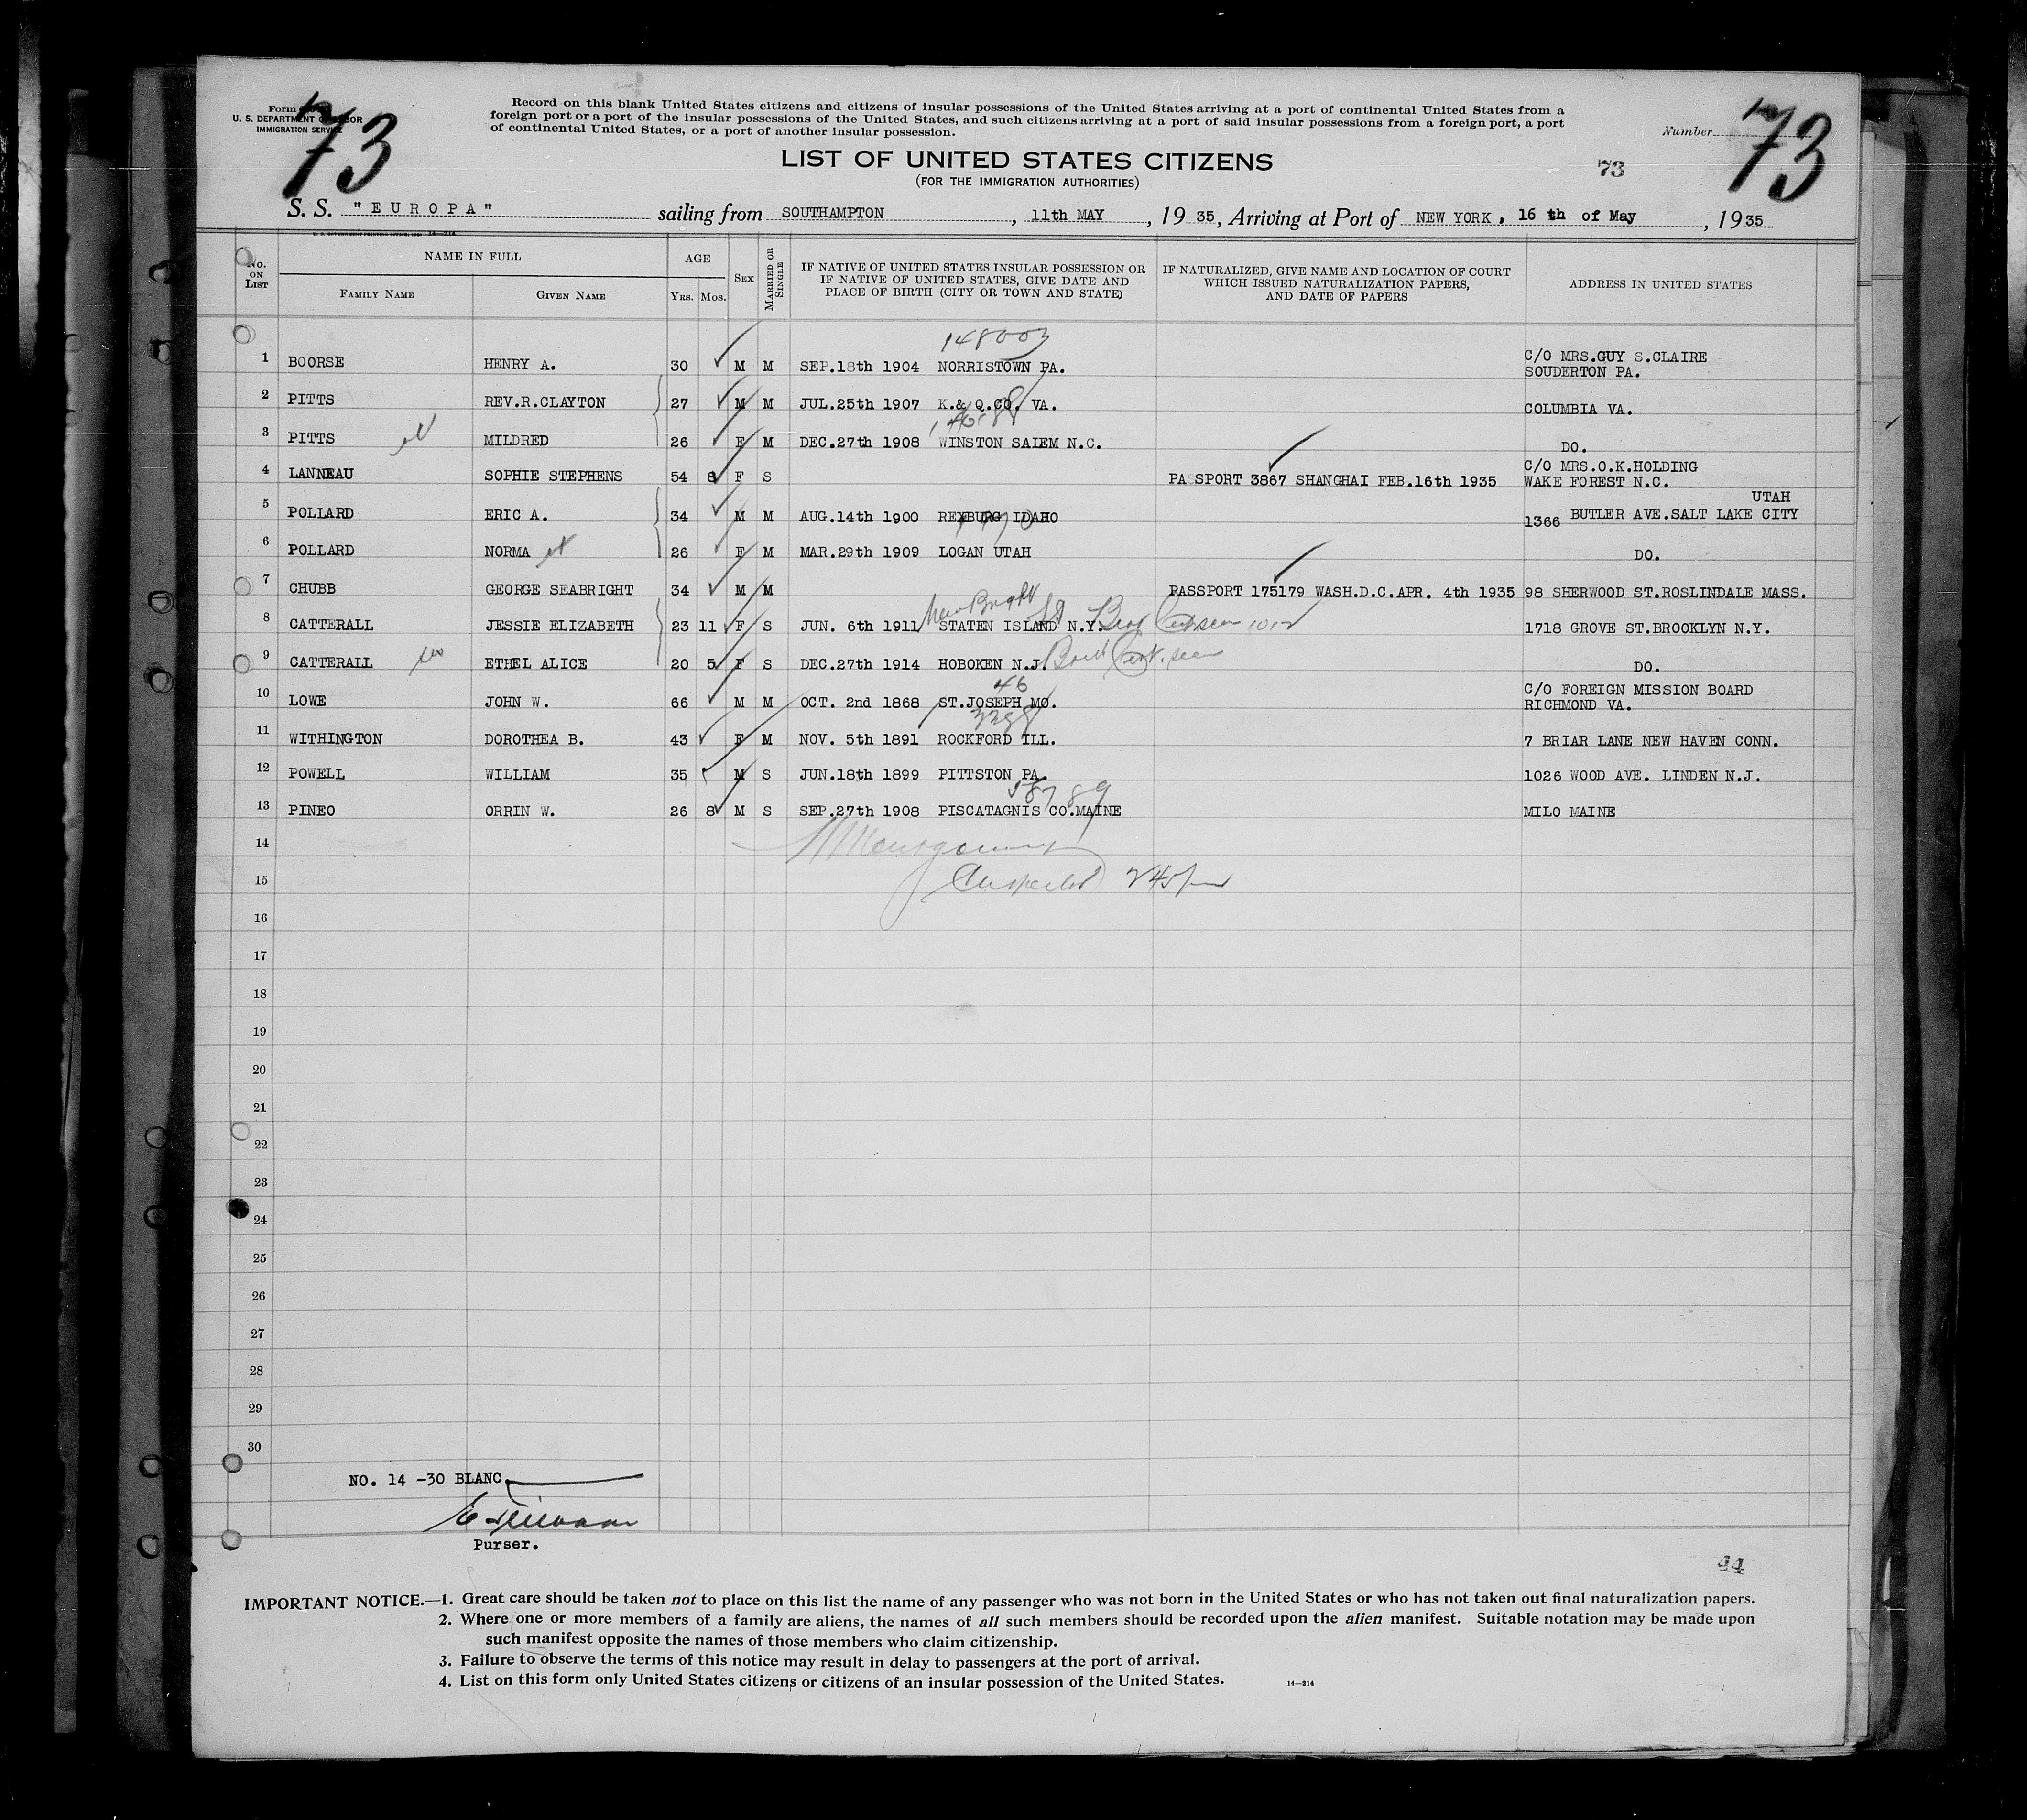 73
Form
U. S. DEPARTMENT OF LABOR
IMMIGRATION SERVICE
Record on this blank United States citizens and citizens of insular possessions of the United States arriving at a port of continental United States from a
foreign port or a port of the insular possessions of the United States, and such citizens arriving at a port of said insular possessions from a foreign port, a port
of continental United States, or a port of another insular possession.
Number
73
LIST OF UNITED STATES CITIZENS
(FOR THE IMMIGRATION AUTHORITIES)
73
S. S. "EUROPA" sailing from SOUTHAMPTON, 11th MAY, 1935, Arriving at Port of NEW YORK, 16 th of May, 1935
No. ON LIST
NAME IN FULL
FAMILY NAME
GIVEN NAME
AGE
YRS. MOS.
SEX
MARRIED OR SINGLE
IF NATIVE OF UNITED STATES INSULAR POSSESSION OR
IF NATIVE OF UNITED STATES, GIVE DATE AND
PLACE OF BIRTH (CITY OR TOWN AND STATE)
IF NATURALIZED, GIVE NAME AND LOCATION OF COURT
WHICH ISSUED NATURALIZATION PAPERS,
AND DATE OF PAPERS
ADDRESS IN UNITED STATES
148003
1 BOORSE HENRY A. 30 M M SEP.18th 1904 NORRISTOWN PA. C/O MRS.GUY S.CLAIRE
SOUDERTON PA.
2 PITTS REV.R.CLAYTON 27 M M JUL.25th 1907 K.& Q.CO. VA. COLUMBIA VA.
3 PITTS MILDRED 26 F M DEC.27th 1908 WINSTON SALEM N.C. DO.
4 LANNEAU SOPHIE STEPHENS 54 8 F S PASSPORT 3867 SHANGHAI FEB.16th 1935 C/O MRS.O.K.HOLDING
WAKE FOREST N.C.
5 POLLARD ERIC A. 34 M M AUG.14th 1900 REXBURG IDAHO 1366 BUTLER AVE.SALT LAKE CITY
UTAH
6 POLLARD NORMA 26 F M MAR.29th 1909 LOGAN UTAH DO.
7 CHUBB GEORGE SEABRIGHT 34 M M PASSPORT 175179 WASH.D.C.APR. 4th 1935 98 SHERWOOD ST.ROSLINDALE MASS.
New Bright
8 CATTERALL JESSIE ELIZABETH 23 11 F S JUN. 6th 1911 STATEN ISLAND N.Y. 1718 GROVE ST.BROOKLYN N.Y.
9 CATTERALL ETHEL ALICE 20 5 F S DEC.27th 1914 HOBOKEN N.J. Birth Cert. seen DO.
46
10 LOWE JOHN W. 66 M M OCT. 2nd 1868 ST.JOSEPH MO. C/O FOREIGN MISSION BOARD
RICHMOND VA.
11 WITHINGTON DOROTHEA B. 43 F M NOV. 5th 1891 ROCKFORD ILL. 7 BRIAR LANE NEW HAVEN CONN.
12 POWELL WILLIAM 35 M S JUN.18th 1899 PITTSTON PA. 1026 WOOD AVE. LINDEN N.J.
58789
13 PINEO ORRIN W. 26 8 M S SEP.27th 1908 PISCATAGNIS CO.MAINE MILO MAINE
14
Montgomery
15
Inspector 245pm
16
17
18
19
20
21
22
23
24
25
26
27
28
29
30
NO. 14 -30 BLANC
Purser.
44
IMPORTANT NOTICE.—1. Great care should be taken not to place on this list the name of any passenger who was not born in the United States or who has not taken out final naturalization papers.
2. Where one or more members of a family are aliens, the names of all such members should be recorded upon the alien manifest. Suitable notation may be made upon
such manifest opposite the names of those members who claim citizenship.
3. Failure to observe the terms of this notice may result in delay to passengers at the port of arrival.
4. List on this form only United States citizens or citizens of an insular possession of the United States.
14—214